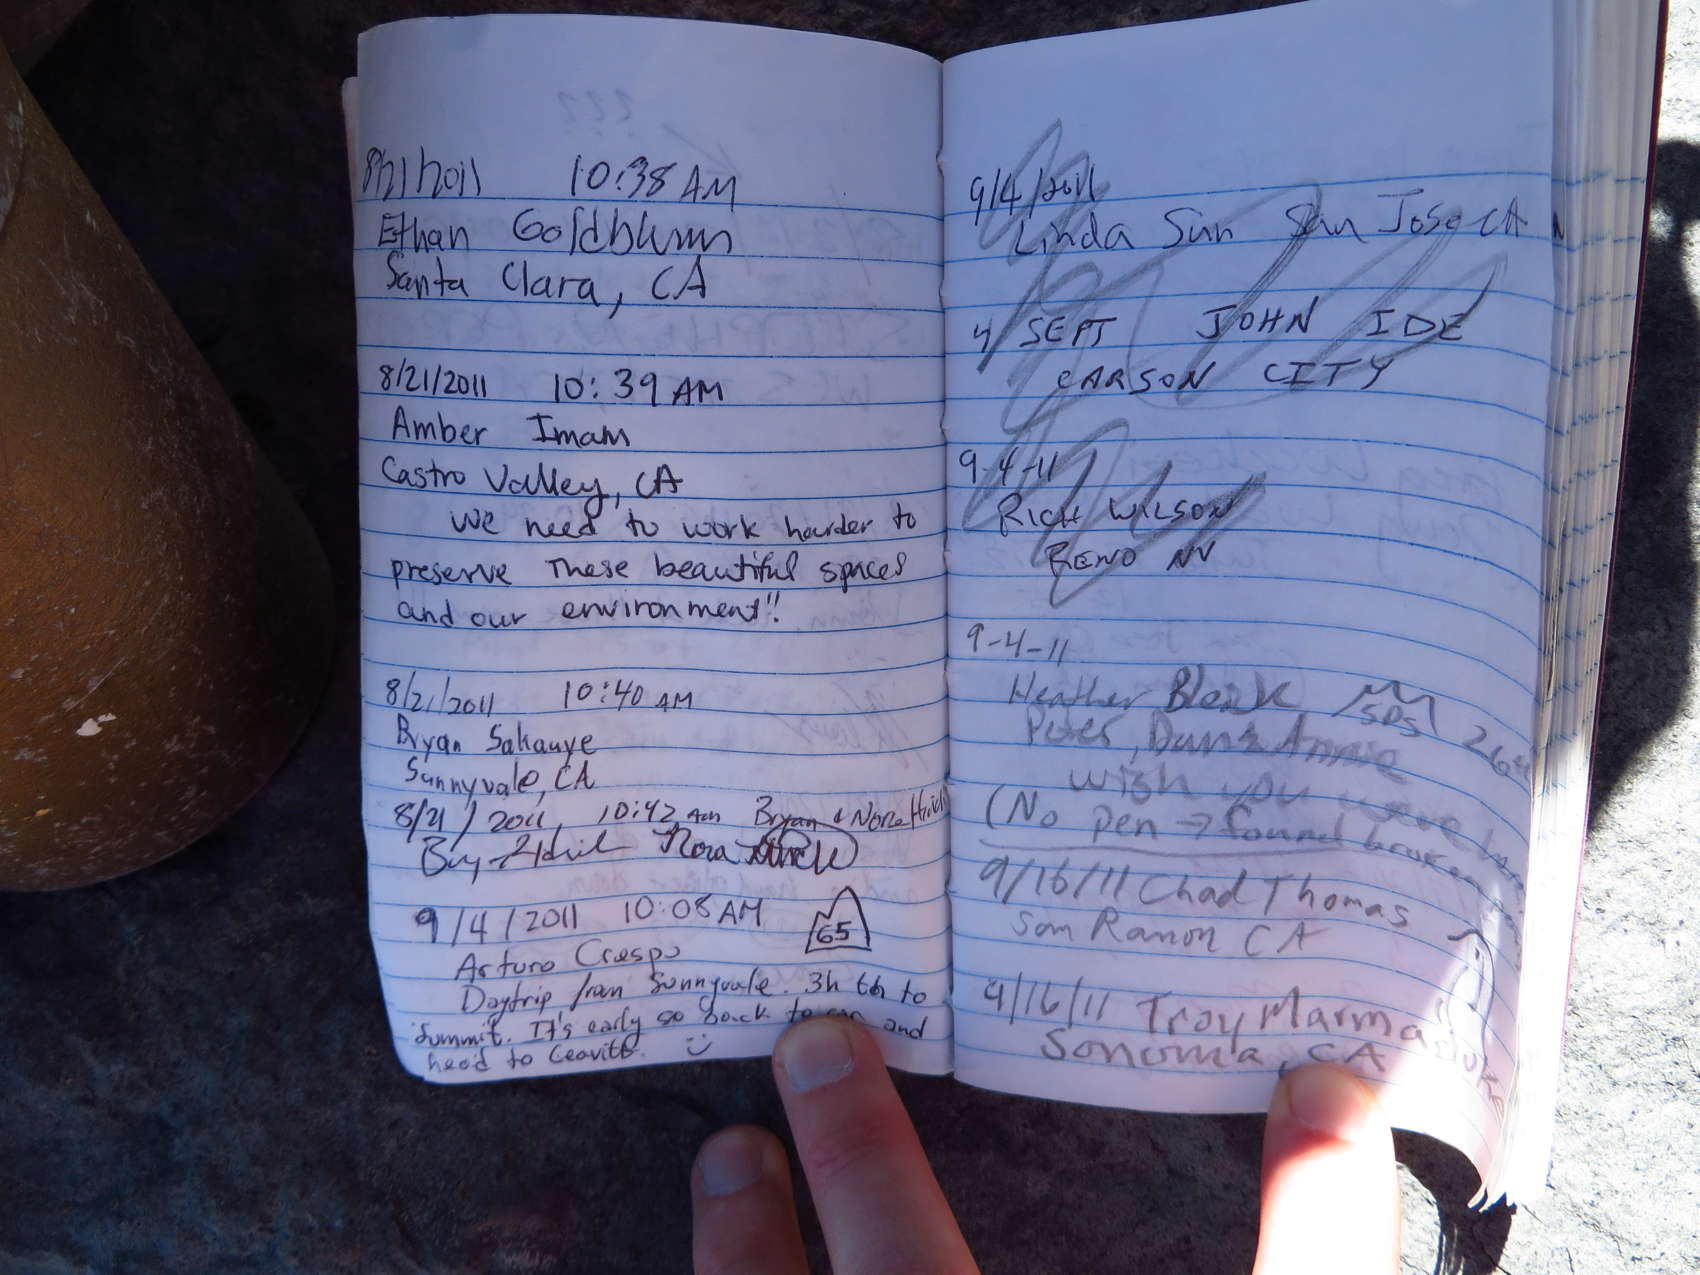 8/21/2011 10:38 AM
Ethan Goldblum
Santa Clara, CA
8/21/2011 10:39 AM
Amber Imam
Castro Valley, CA
We need to work harder to
preserve these beautiful spaces
and our environment!!
8/21/2011 10:40 AM
Bryan Sakauye
Sunnyvale, CA
8/21/2011, 10:42 AM Bryan & Nora
Nora
9/4/2011 10:08 AM
65
Arturo Crespo
Daytrip from Sunnyvale. 3h 6m to
summit. It's early so back to car and
head to Leavitt.
9/4/2011
Linda Sun San Jose CA
4 SEPT JOHN IDE
CARSON CITY
9-4-11
RICH WILSON
RENO NV
9-4-11
Heather
SPS
Peter,
wish you were
(No pen → found broken
9/16/11 Chad Thomas
San Ramon CA
9/16/11 Troy
Sonoma, CA